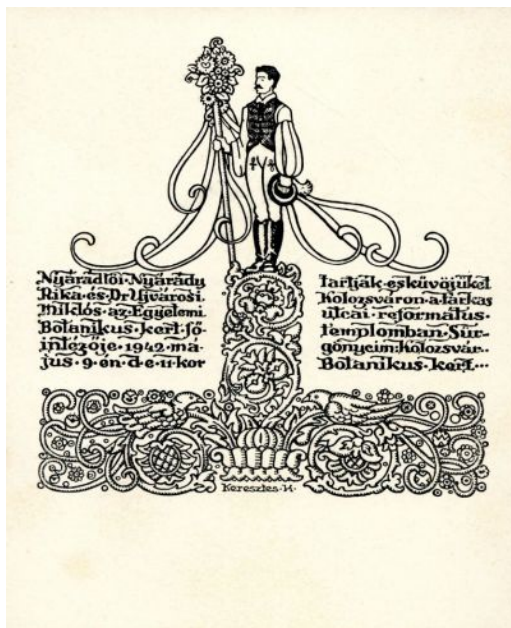 Nyárádtői·Nyárády
Rika·és·Dr·Ujvárosi·
Miklós·az·Egyetemi
Botanikus·kert·fő-
intézője·1942·má-
jus·9·én·d·e·11·kor
tartják·esküvőjüket
Kolozsváron·a·farkas
utcai·református·
templomban·Sür-
gönycim:Kolozsvár·
Botanikus·kert···
Keresztes·H·